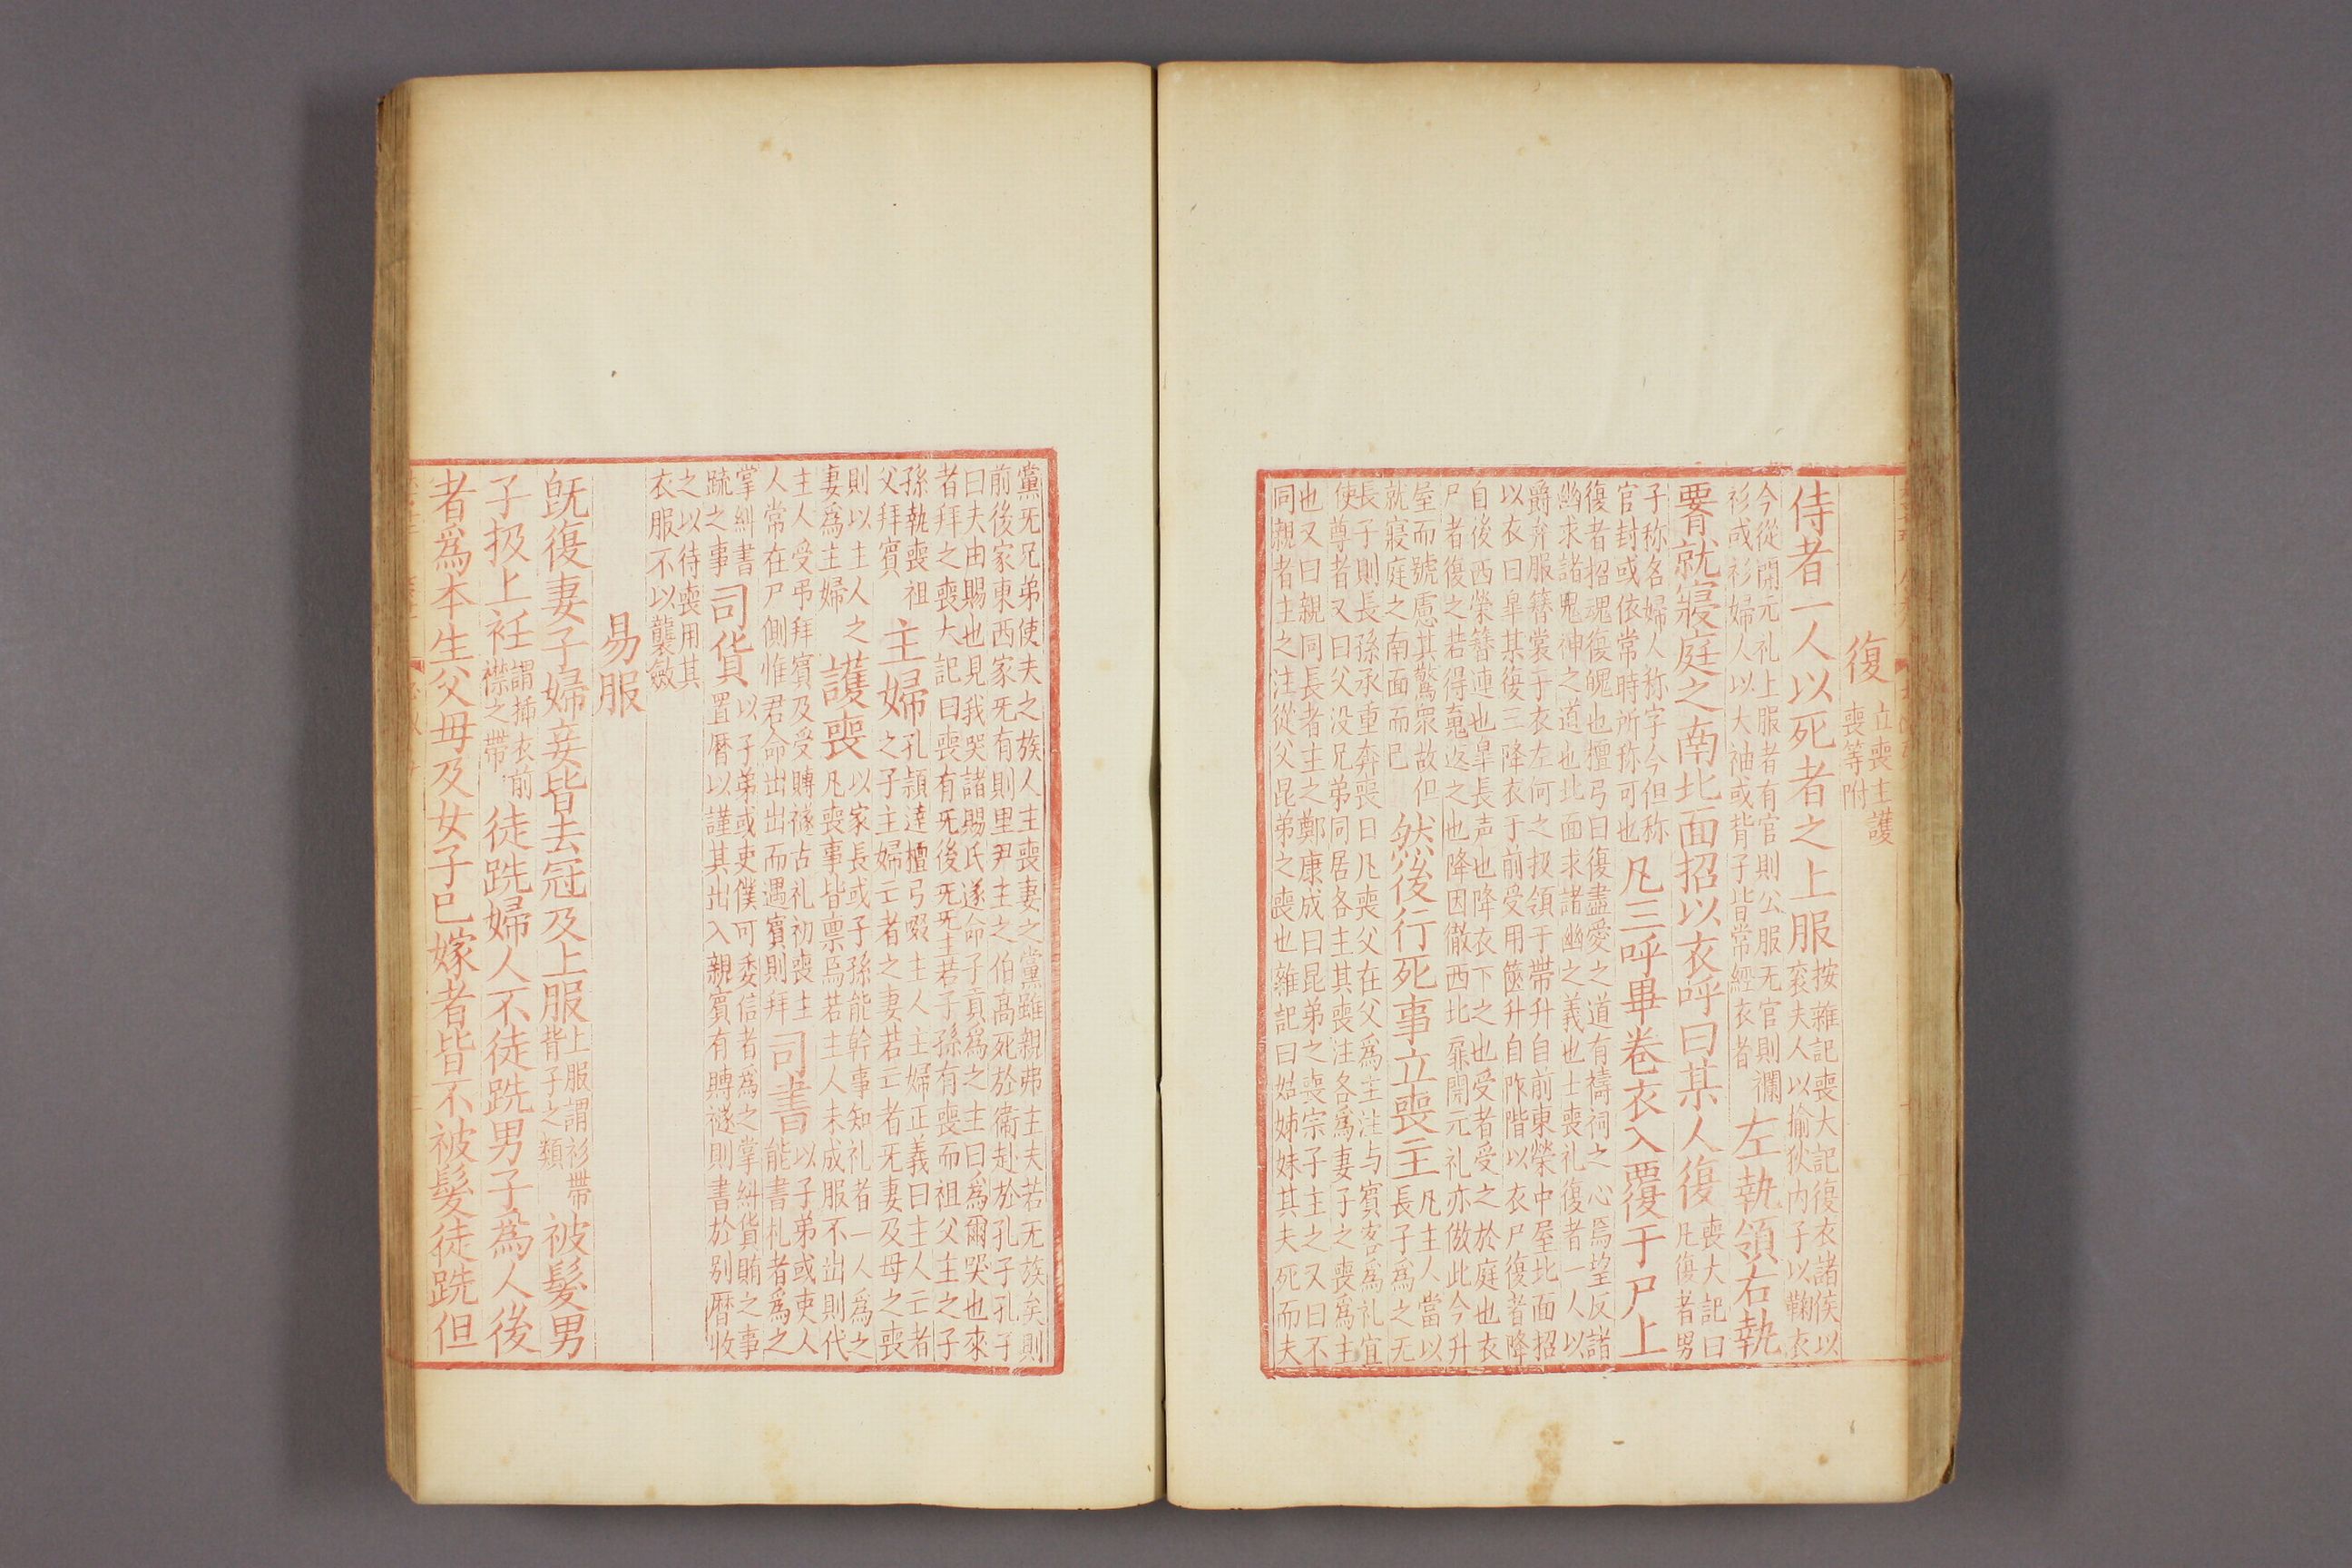 復
立喪主護
喪等附
侍者一人以死者之上服
按雜記喪大記復衣諸侯以
衮夫人以揄狄内子以鞠衣
今從開元礼上服者有官則公服无官則襴
衫或衫婦人以大袖或背子皆常經衣者
左執領右執
要就寢庭之南北面招以衣呼曰某人復
喪大記曰
凡復者男
子称名婦人称字今但称
官封或依常時所称可也
凡三呼畢卷衣入覆于尸上
復者招魂復魄也檀弓曰復盡愛之道有禱祠之心焉望反諸
幽求諸鬼神之道也北面求諸幽之義也士喪礼復者一人以
爵弁服簪裳于衣左何之扱領于帶升自前東榮中屋北面招
以衣曰皐某復三降衣于前受用篋升自阼階以衣尸復者降
自後西榮簪連也皐長声也降衣下之也受者受之於庭也衣
尸者復之若得䰟返之也降因徹西北厞開元礼亦倣此今升
屋而號慮其驚衆故但
就寢庭之南面而已
然後行死事立喪主
凡主人當以
長子爲之无
長子則長孫承重奔喪曰凡喪父在父爲主注与賔客爲礼宜
使尊者又曰父没兄弟同居各主其喪注各爲妻子之喪爲主
也又曰親同長者主之鄭康成曰昆弟之喪宗子主之又曰不
同親者主之注從父昆弟之喪也雜記曰姑姊妹其夫死而夫
黨无兄弟使夫之族人主喪妻之黨雖親弗主夫若无族矣則
前後家東西家无有則里尹主之伯高死於衞赴於孔子孔子
曰夫由賜也見我哭諸賜氏遂命子貢爲之主曰爲爾哭也來
者拜之喪大記曰喪有无後无无主若子孫有喪而祖父主之子
孫執喪祖
父拜賔
主婦
孔頴達檀弓啜主人主婦正義曰主人亡者
之子主婦亡者之妻若亡者无妻及母之喪
則以主人之
妻爲主婦
護喪
以家長或子孫能幹事知礼者一人爲之
凡喪事皆禀焉若主人未成服不出則代
主人受弔拜賔及受賻襚古礼初喪主
人常在尸側惟君命出出而遇賔則拜
司書
以子弟或吏人
能書札者爲之
掌糾書
疏之事
司貨
以子弟或吏僕可委信者爲之掌糾貨賄之事
置暦以謹其出入親賔有賻襚則書於别暦收
之以待喪用其
衣服不以襲斂
易服
既復妻子婦妾皆去冠及上服
上服謂衫帶
背子之類
被髮男
子扱上衽
謂插衣前
襟之帶
徒跣婦人不徒跣男子爲人後
者爲本生父母及女子已嫁者皆不被髮徒跣但